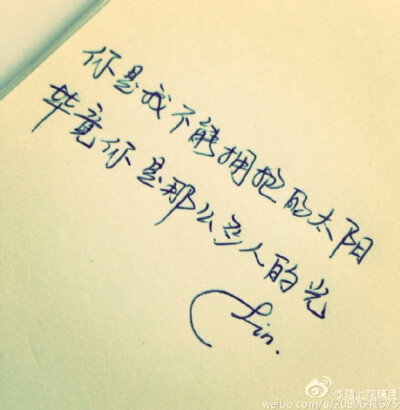 你是我不能拥抱的太阳
毕竟你是那么多人的光
Lin.
weibo.com/u/2080641675